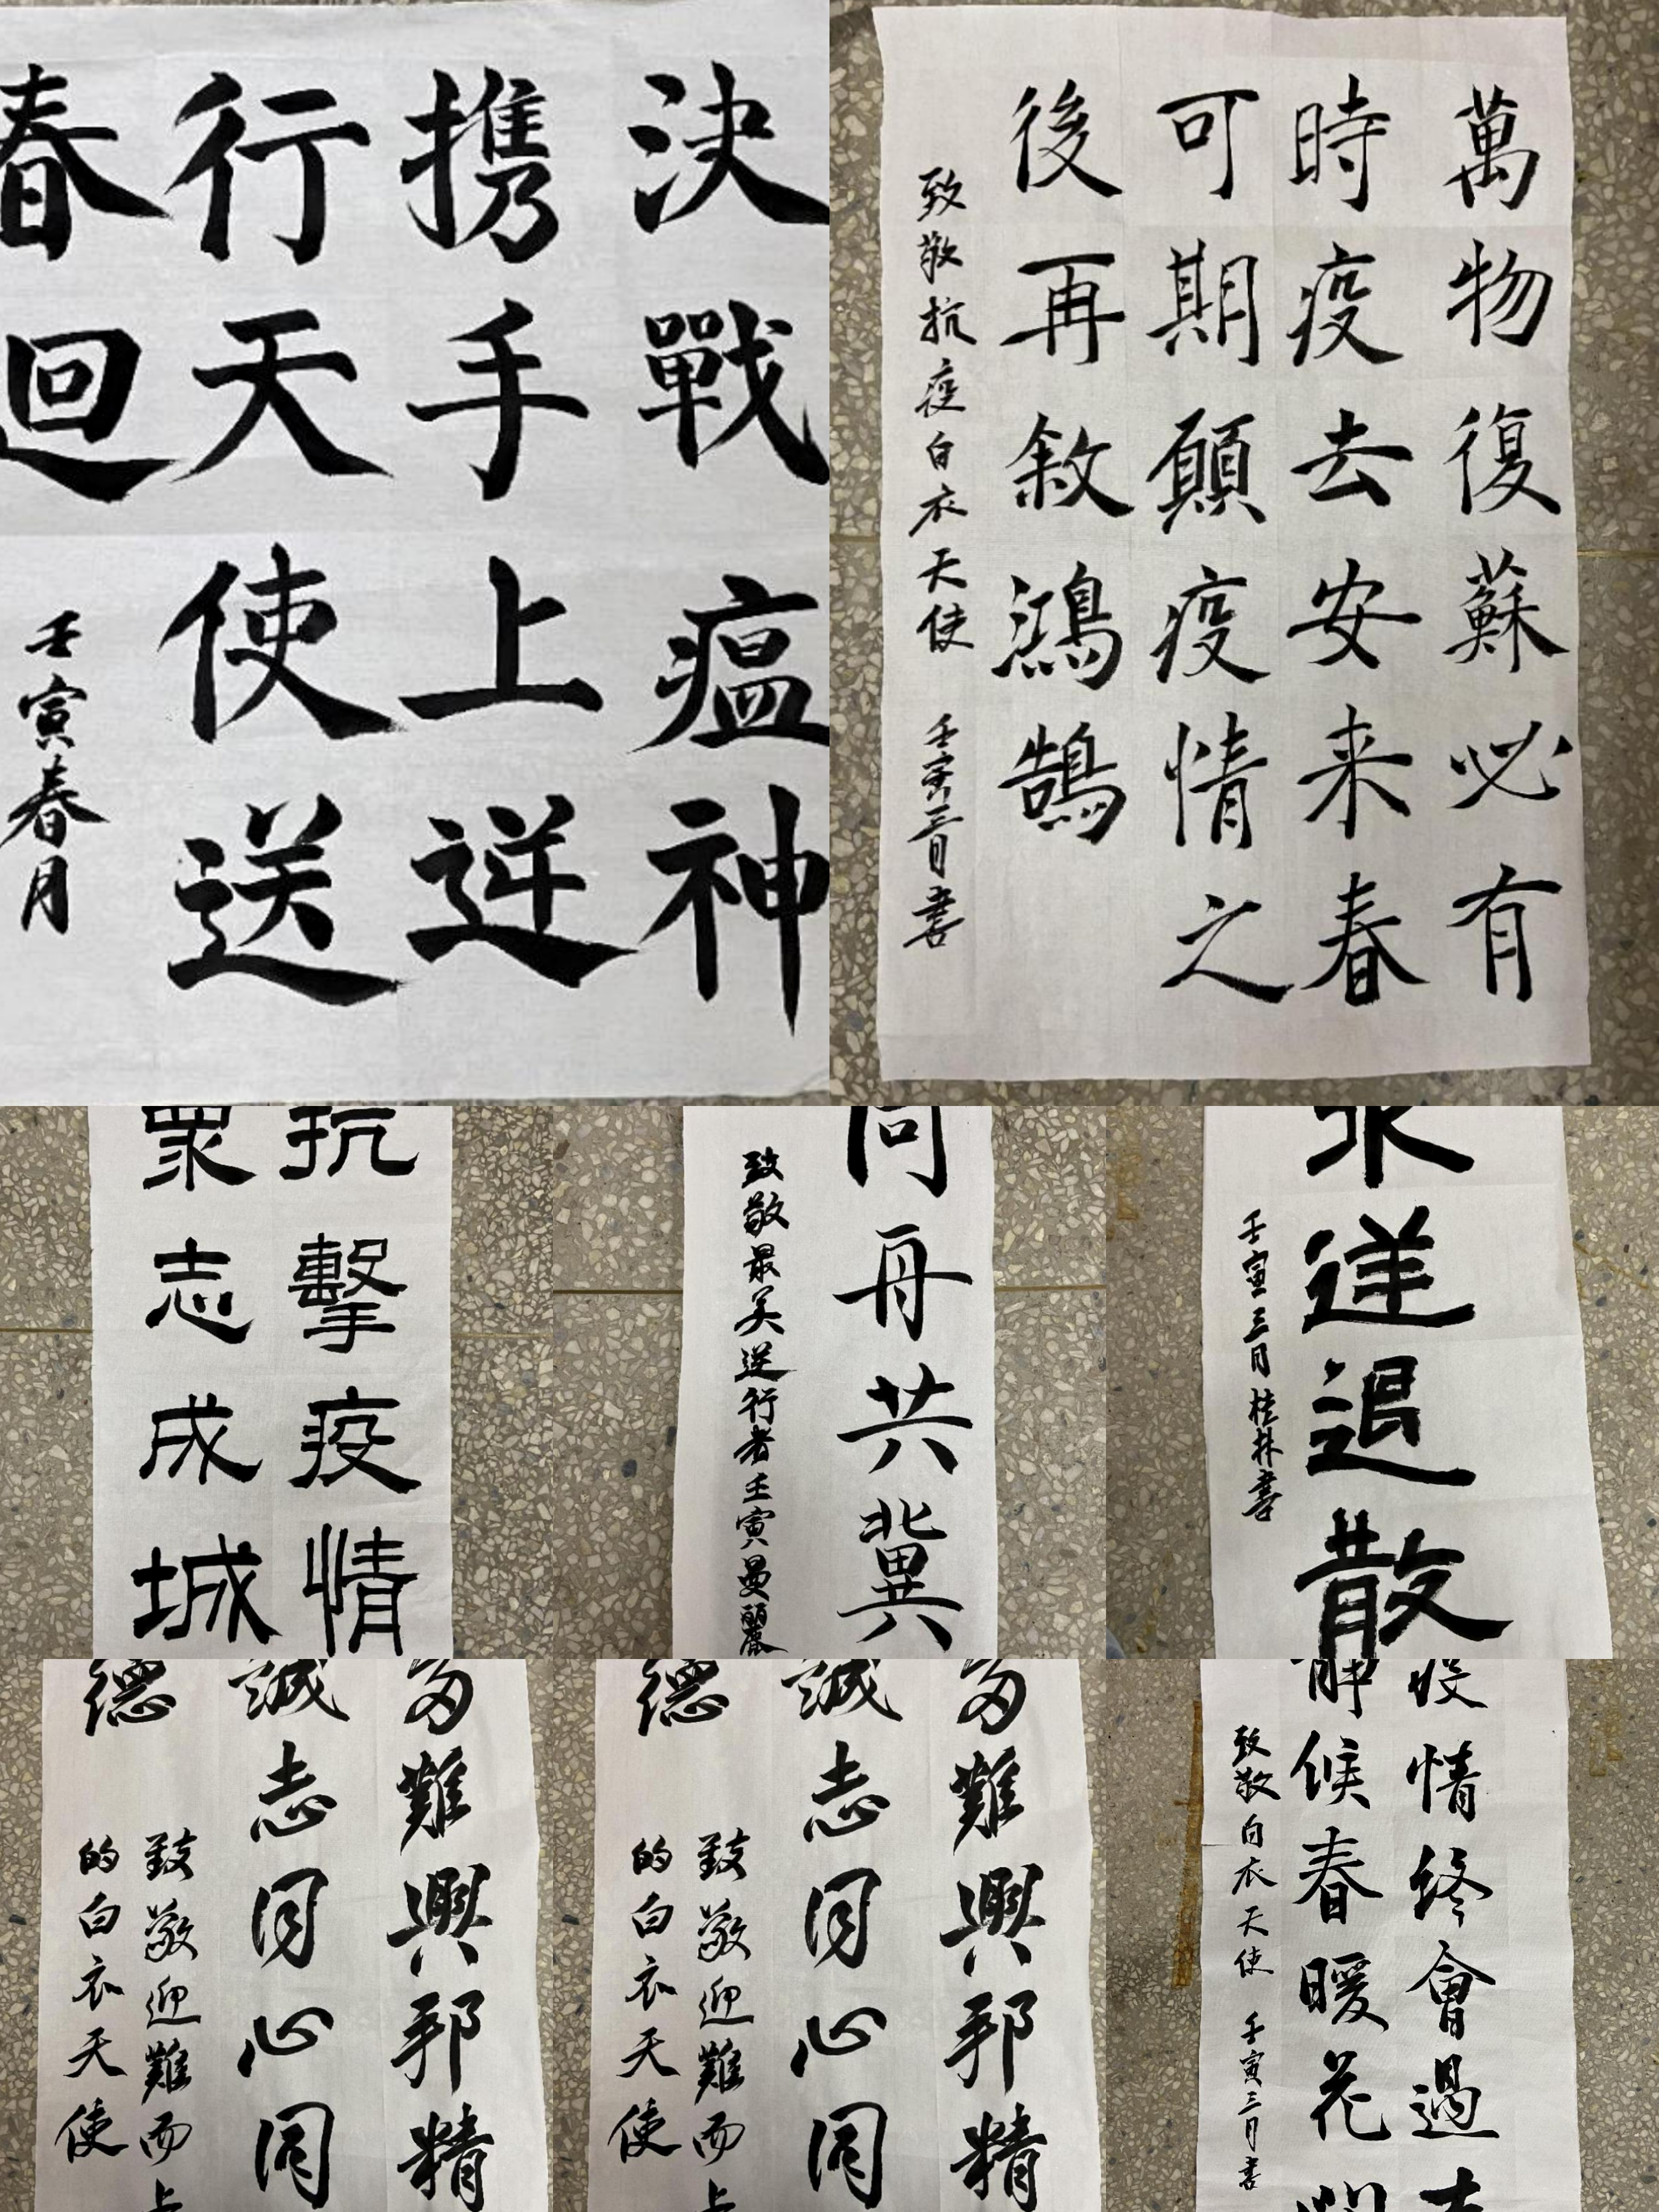 決戰瘟神
携手上逆
行天使送
春回
壬寅春月
萬物復蘇必有
時疫去安来春
可期願疫情之
後再敘鴻鵠
致敬抗疫白衣天使 壬寅三月書
抗擊疫情
眾志成城
同舟共冀
致敬最美逆行者壬寅曼麗
逆退散
壬寅三月桂林書
多難興邦精
誠志同心同
德
致敬迎難而上
的白衣天使
多難興邦精
誠志同心同
德
致敬迎難而上
的白衣天使
疫情終會過去
靜候春暖花開
致敬白衣天使 壬寅三月書